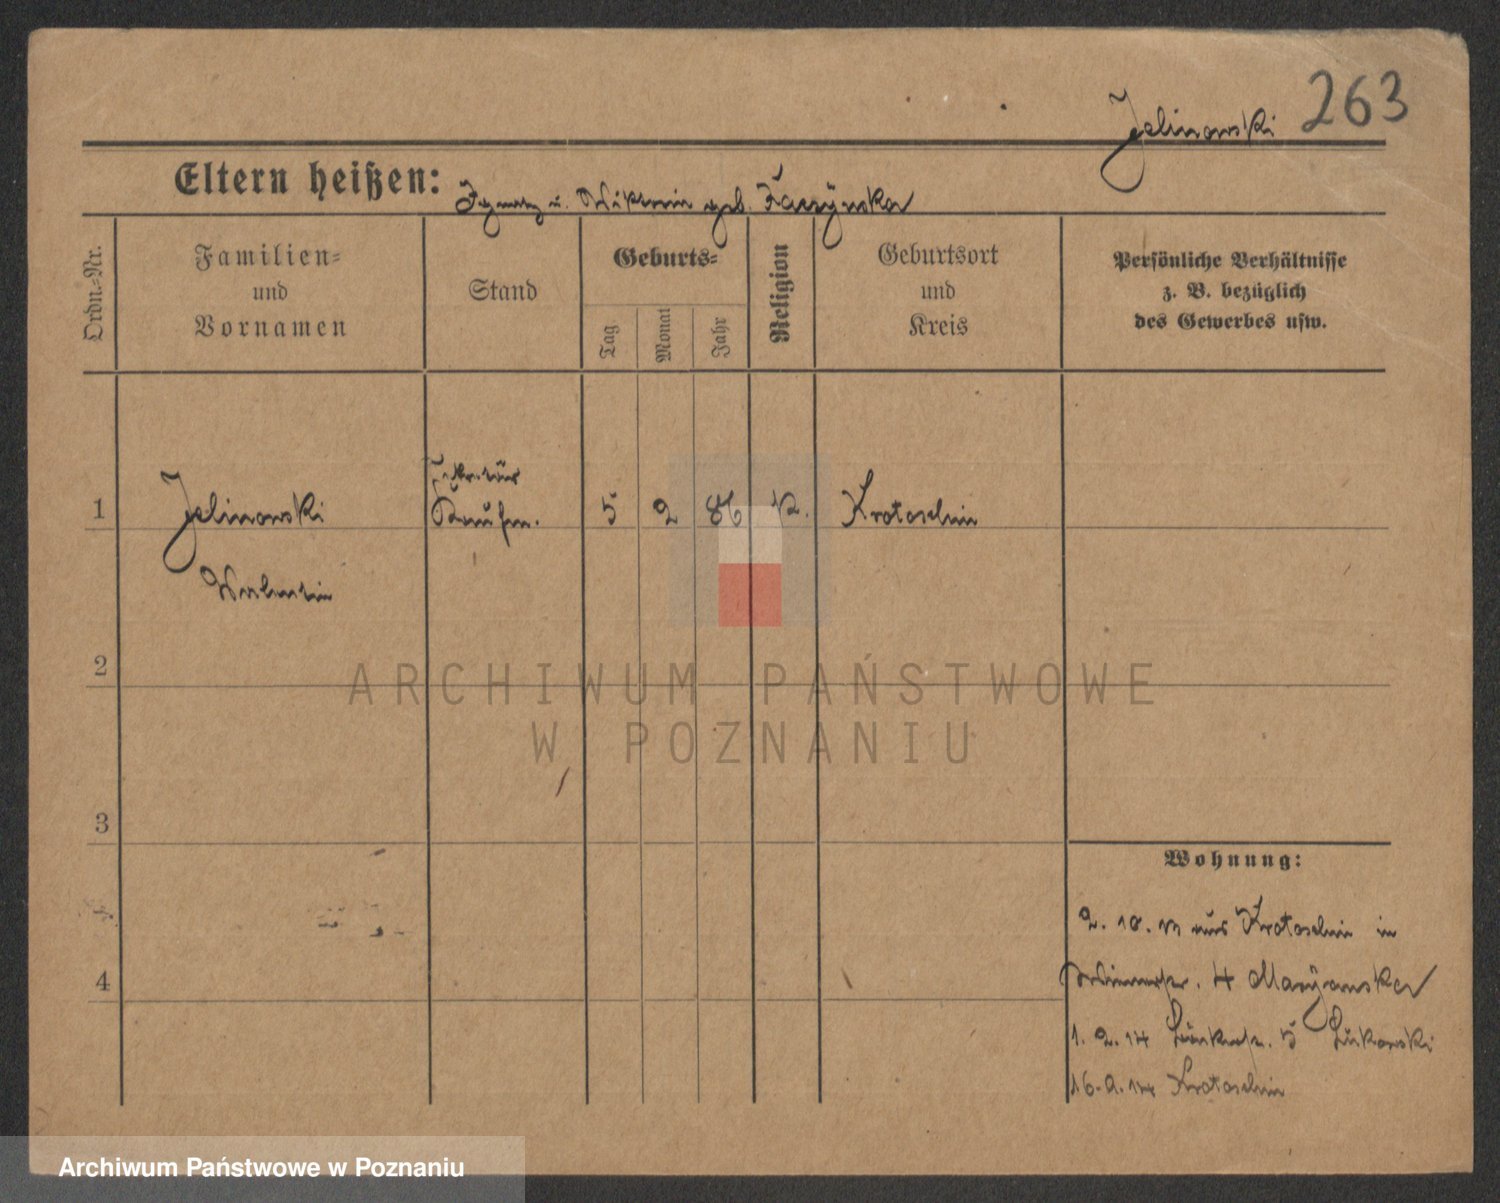 Jelinowski 263
Eltern heißen: Ignatz u. Viktoria geb. Kaczyńska
Ordn.-Nr.
Familien-
und
Vornamen
Stand
Geburts-
Tag
Monat
Jahr
Religion
Geburtsort
und
Kreis
Persönliche Verhältnisse
z. B. bezüglich
des Gewerbes usw.
1 Jelinowski Kaufm. 5 2 86 k. Krotoschin
Valentin
2
3
4
Wohnung:
2. 10. 13 aus Krotoschin in
4 Maryanska
1. 2. 14 5 Lukowski
16. 2. 14 Krotoschin
ARCHIWUM PAŃSTWOWE
W POZNANIU
Archiwum Państwowe w Poznaniu